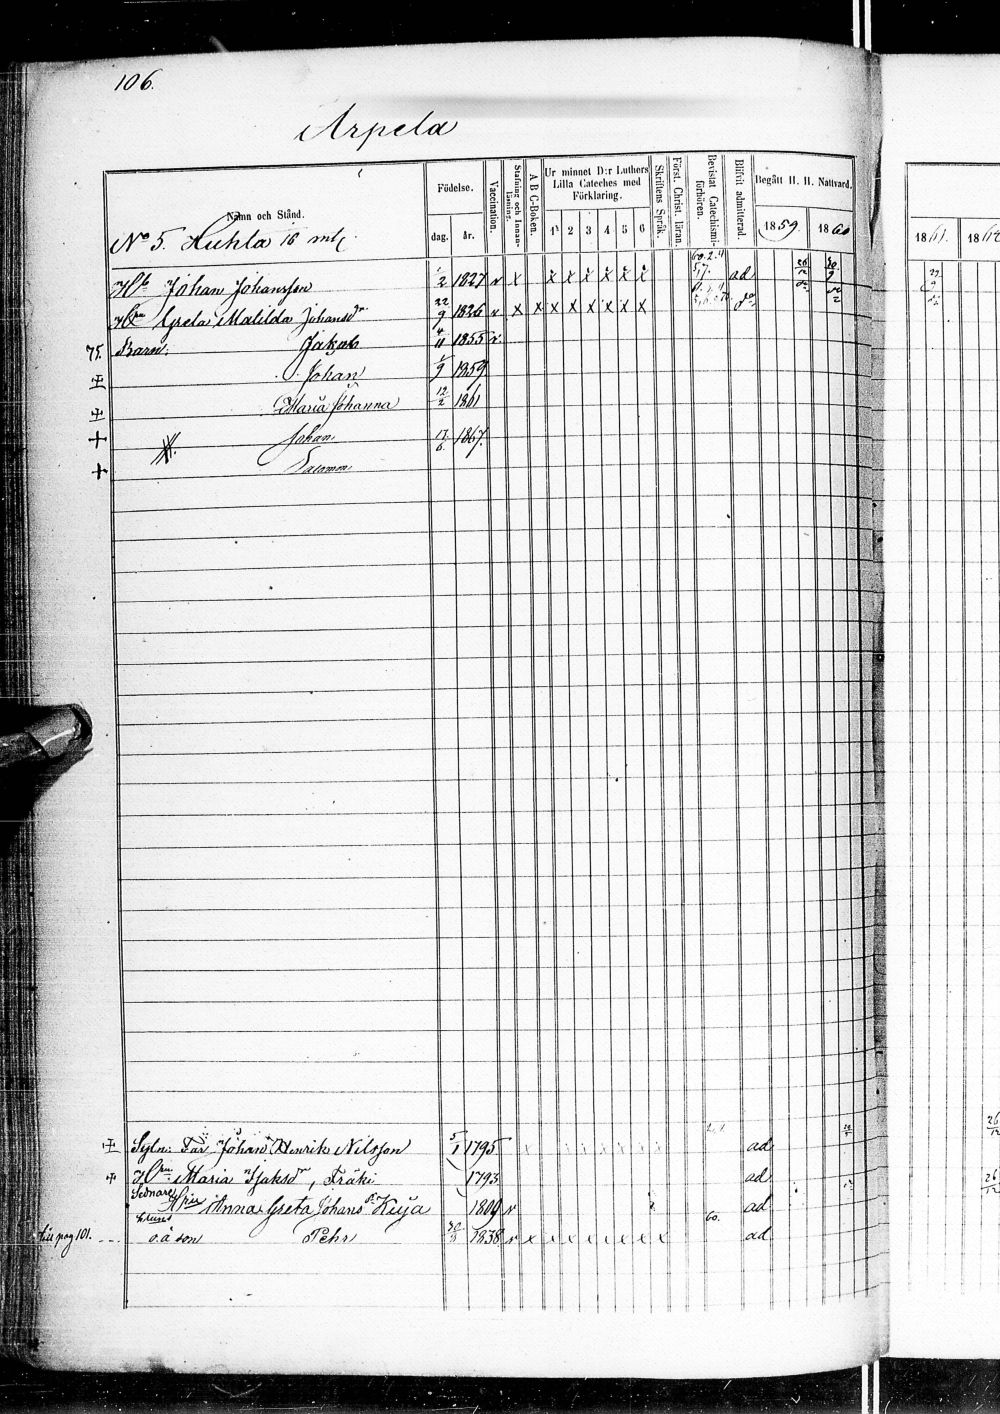 106.
Arpela
Namn och Stånd. Födelse. dag. år. Vaccination. Stafning och Innanläsning. A B C-Boken. Ur minnet D:r Luthers Lilla Cateches med Förklaring. 1 2 3 4 5 6 Skriftens Språk. Först. Christ. läran. Bevistat Catechismiförhören. Blifvit admitterad. Begått H. H. Nattvard. 1859. 1860 1861. 1862
No 5. Huhla
Johan Johansson 1/2 1827 v x x x x x x x ad
Greta Matilda Johansdr 22/9 1826 v x x x x x x x x do
75. Barn: Jakob 4/11 1855 v
Johan 1/9 1859
Maria Johanna 12/2 1861
Johan 17/6 1867.
Salomon
Far Johan Henrik Nilsson 5/1 1795 ad
Maria, Träki 1793 ad
Sednare
Anna Greta Johansdr Kuja 1809 v ad
till pag 101. o. ä son Pehr 1838 v x x x x x x x x 60. ad